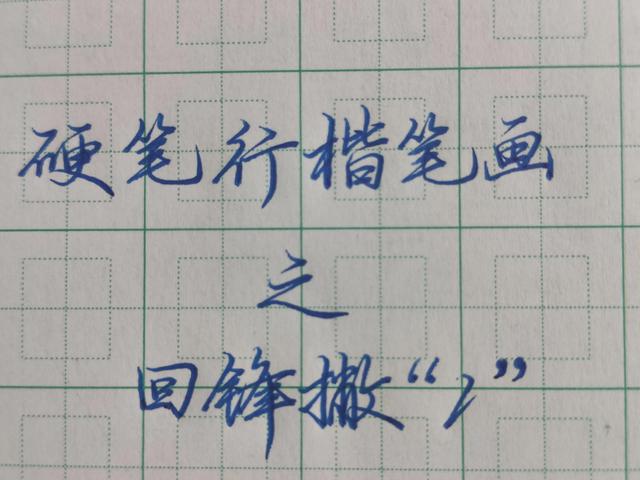 硬笔行楷笔画
之
回锋撇“㇒”